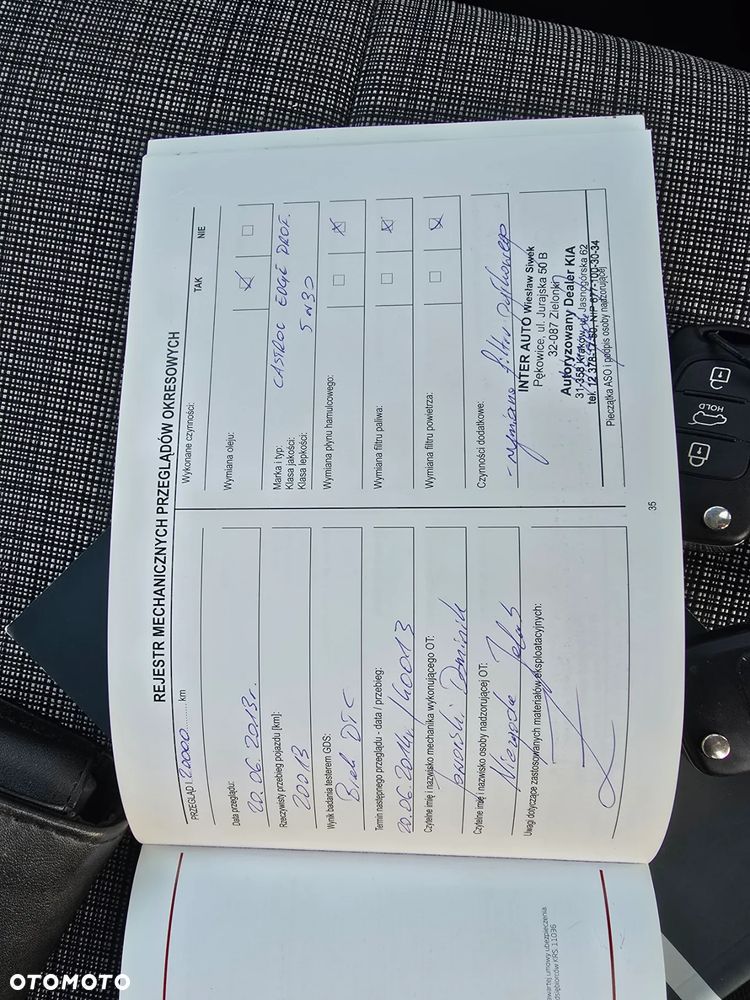 REJESTR MECHANICZNYCH PRZEGLĄDÓW OKRESOWYCH
PRZEGLĄD I 20000 km
Data przeglądu:
20.06.2013r.
Rzeczywisty przebieg pojazdu [km]:
20013
Wynik badania testerem GDS:
Brak DTC
Termin następnego przeglądu - data / przebieg:
20.06.2014r/40013
Czytelne imię i nazwisko mechanika wykonującego OT:
Jaworski Dominik
Czytelne imię i nazwisko osoby nadzorującej OT:
Uwagi dotyczące zastosowanych materiałów eksploatacyjnych:
Wykonane czynności:
TAK NIE
Wymiana oleju:
Marka i typ: CASTROL EDGE PROF.
Klasa jakości:
Klasa lepkości: 5W30
Wymiana płynu hamulcowego:
Wymiana filtru paliwa:
Wymiana filtru powietrza:
Czynności dodatkowe:
- wymiana filtra pyłkowego
INTER AUTO Wiesław Siwek
Pękowice, ul. Jurajska 50 B
32-087 Zielonki
Autoryzowany Dealer KIA
31-358 Kraków, ul. Jasnogórska 62
Pieczątka ASO i podpis osoby nadzorującej
35
HOLD
OTOMOTO